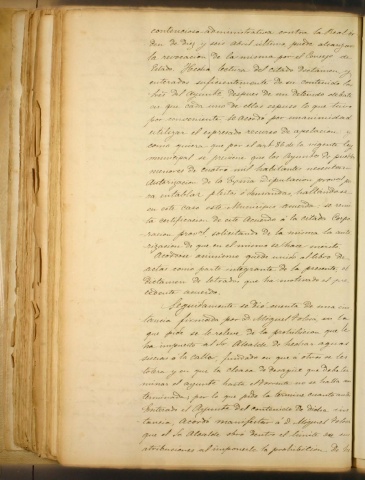 contencioso administrativa contra la Real or
den de diez y seis abril último puede alcanzar
la revocacion de la misma por el Consejo de
Estado. Hecha lectura del citado dictamen y
enterados suficientemente de su contenido los
Sres del Ayuntº despues de un detenido debate
en que cada uno de ellos espuso lo que tuvo
por conveniente se acordó por unanimidad
utilizar el espresado recurso de apelacion y
como quiera que por el artº 86 de la vigente ley
municipal se previene que los Ayuntºs de pobla
ciones de cuatro mil habitantes necesitan
autorizacion de la Diputacion provincial
para entablar pleitos hallandose
en este caso este Municipio acuerda se remi
ta certificacion de este acuerdo á la citada Corpo
racion provl solicitando de la misma la auto
rizacion de que en el mismo se hace merito
Acuerdan asimismo quede unido al libro de
actas como parte integrante de la presente el
dictamen de letrados que ha motivado el pre
cedente acuerdo.
Seguidamente se dió cuenta de una ins
tancia firmada por D. Miguel en la
que pide se le releve de la prohibicion que le
ha impuesto el Sr Alcalde de hechar aguas
sucias á la calle, fundado en que á otros se les
tolera y en que la cloaca de desague que debe ter
minar el ayuntº hasta no se halla
terminada, por lo que pide la termine cuanto antes
Enterado el Ayuntº del contenido de dicha ins
tancia, Acordó manifestar á D. Miguel
que el Sr Alcalde obró dentro el limite de sus
atribuciones al imponerle la prohibicion. De la